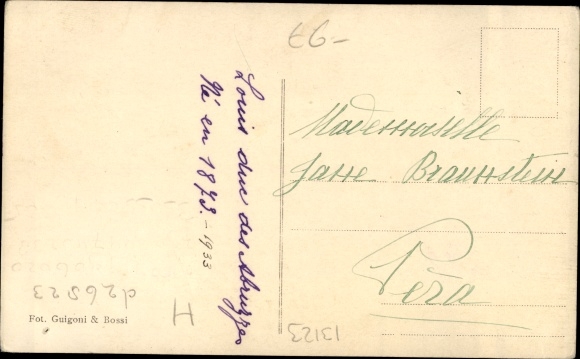 69-
Louis duc des Abruzzes
Né en 1873.-1933
Mademoiselle
Jane Braunstein
Péra
d26823
Fot. Guigoni & Bossi
H
13123